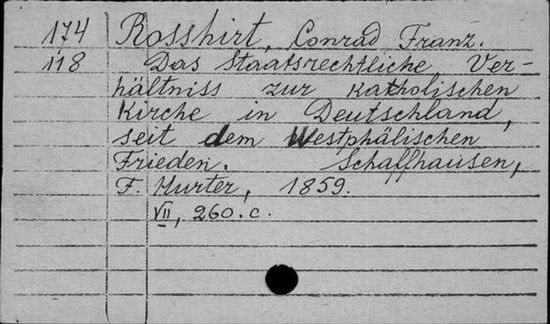 174 Rosshirt, Conrad Franz.
118 Das Staatsrechtliche Ver-
hältniss zur katholischen
Kirche in Deutschland,
seit dem Westphälischen
Frieden. Schaffhausen,
F. Hurter, 1859.
VII, 260. c.